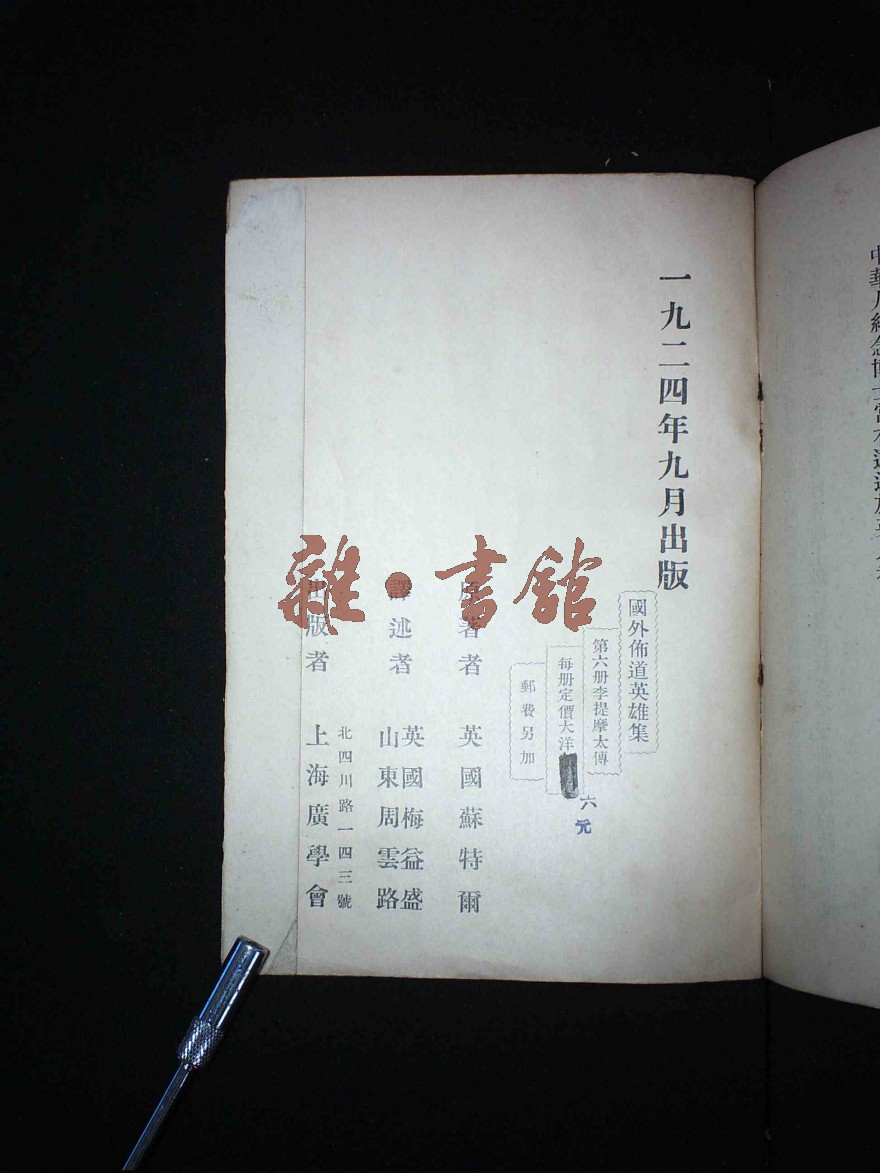 一九二四年九月出版
國外佈道英雄集
第六册李提摩太傳
每册定價大洋
六元
郵費另加
原著者 英國蘇特爾
譯述者 英國梅益盛
山東周雲路
出版者 北四川路一四三號
上海廣學會
雜·書館